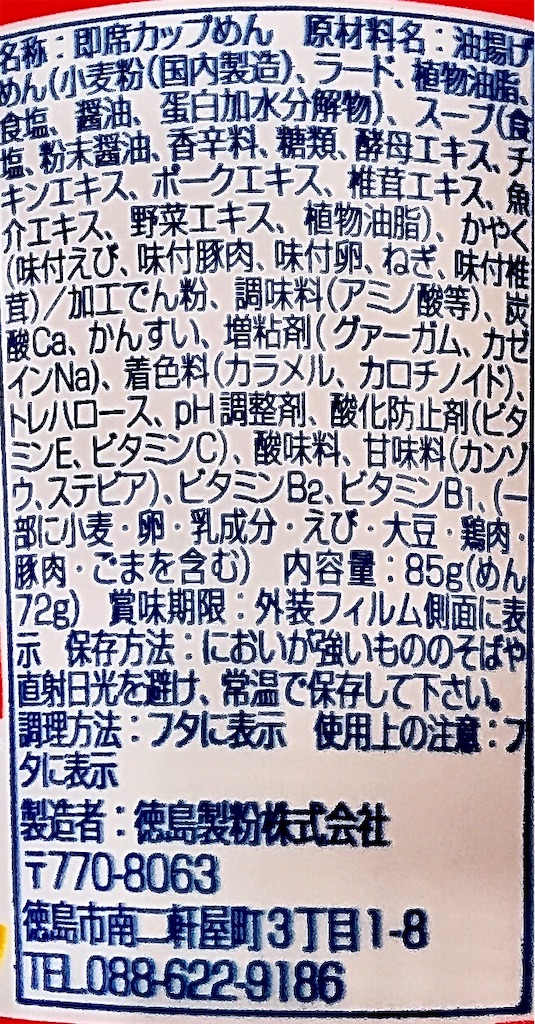 名称：即席カップめん　原材料名：油揚げ
めん(小麦粉(国内製造)、ラード、植物油脂、
食塩、醤油、蛋白加水分解物)、スープ(食
塩、粉末醤油、香辛料、糖類、酵母エキス、チ
キンエキス、ポークエキス、椎茸エキス、魚
介エキス、野菜エキス、植物油脂)、かやく
(味付えび、味付豚肉、味付卵、ねぎ、味付椎
茸)／加工でん粉、調味料(アミノ酸等)、炭
酸Ca、かんすい、増粘剤(グァーガム、カゼ
インNa)、着色料(カラメル、カロチノイド)、
トレハロース、pH調整剤、酸化防止剤(ビタ
ミンE、ビタミンC)、酸味料、甘味料(カンゾ
ウ、ステビア)、ビタミンB2、ビタミンB1、(一
部に小麦・卵・乳成分・えび・大豆・鶏肉・
豚肉・ごまを含む)　内容量：85g(めん
72g)　賞味期限：外装フィルム側面に表
示　保存方法：においが強いもののそばや
直射日光を避け、常温で保存して下さい。
調理方法：フタに表示　使用上の注意：フ
タに表示
製造者：徳島製粉株式会社
〒770-8063
徳島市南二軒屋町3丁目1-8
TEL.088-622-9186